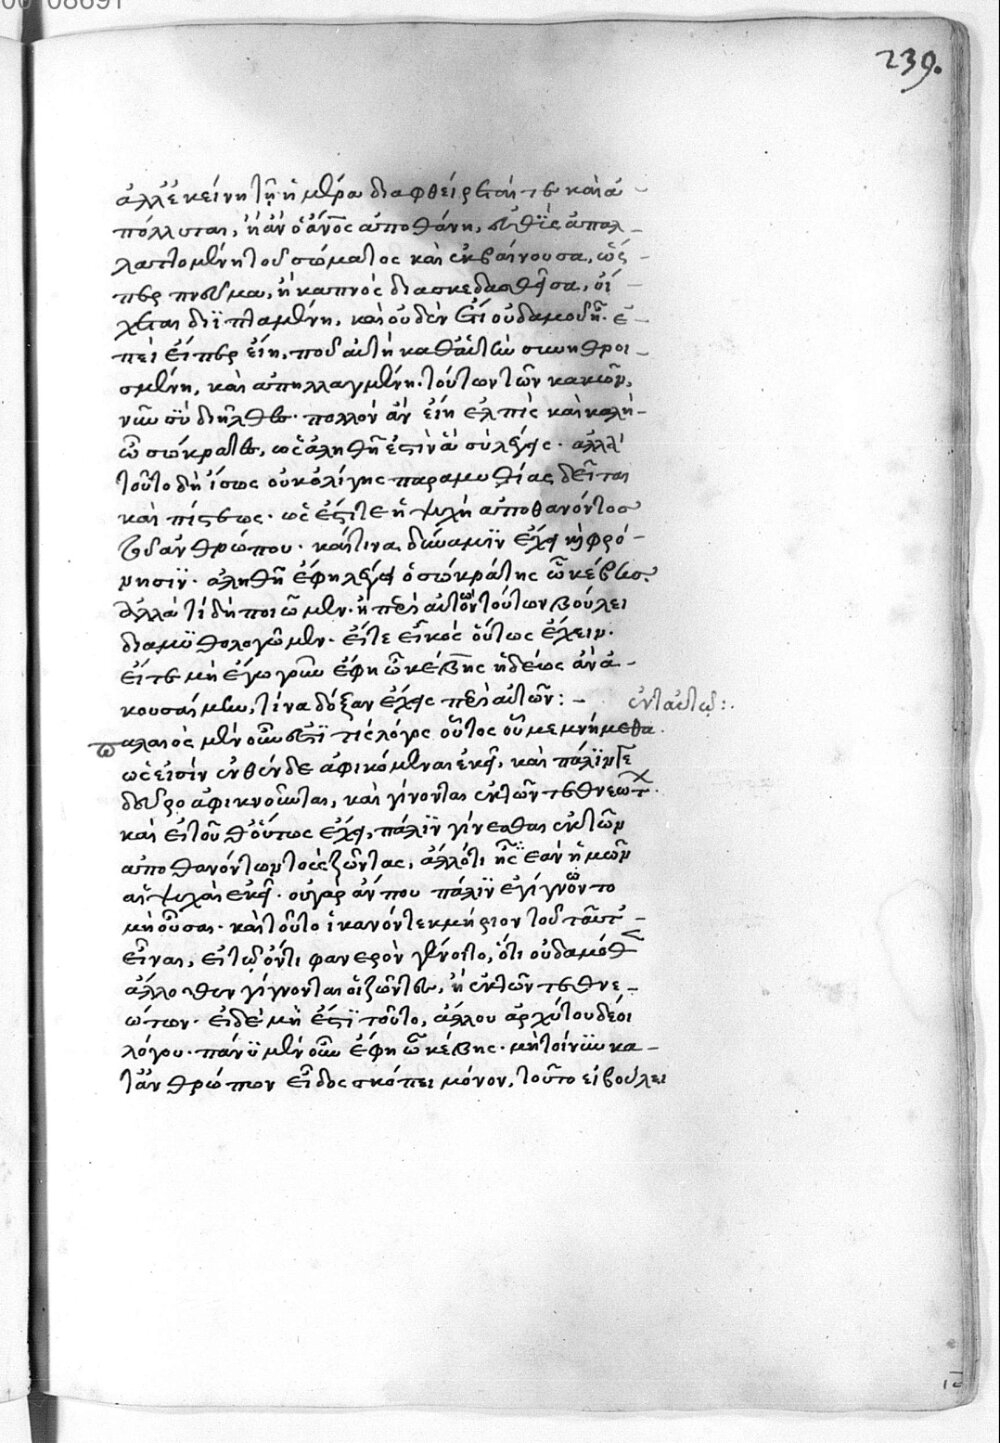 239.
ἀλλ' ἐκείνῃ τῇ ἡμέρᾳ διαφθείρεταί τε καὶ ἀ-
πόλλυται, ᾗ ἂν ὁ ἄνος ἀποθάνῃ, εὐθὺς ἀπαλ-
λαττομένη τοῦ σώματος καὶ ἐκβαίνουσα, ὥς-
περ πνεῦμα, ἢ καπνὸς διασκεδασθεῖσα, οἴ-
χεται διϊπταμένη, καὶ οὐδὲν ἔτι οὐδαμοῦ ᾖ. ἐ-
πεὶ εἴπερ εἴη, που αὐτὴ καθ' αὑτὴν συνηθροι-
σμένη, καὶ ἀπηλλαγμένη. τούτων τῶν κακῶν,
νῦν σὺ διῆλθες. πολλὴ ἂν εἴη ἐλπὶς καὶ καλὴ-
ὦ σώκρατες, ὡς ἀληθῆ ἐστὶν ἃ σὺ λέγεις. ἀλλὰ
τοῦτο δὴ ἴσως οὐκ ὀλίγης παραμυθίας δεῖται
καὶ πίστεως. ὡς ἔστι τε ἡ ψυχὴ ἀποθανόντος
τοῦ ἀνθρώπου. καί τινα δύναμιν ἔχει κ φρό-
νησιν. ἀληθῆ ἔφη λέγεις ὁ σωκράτης ὦ κέβης.
ἀλλὰ τί δὴ ποιῶμεν. ἢ περὶ αὐτῶν τούτων βούλει
διαμυθολογῶμεν. εἴτε εἰκὸς οὕτως ἔχειν.
εἴτε μὴ ἔγωγ' οὖν ἔφη ὁ κέβης ἡδέως ἂν ἀ-
κουσαίμην, τίνα δόξαν ἔχεις περὶ αὐτῶν:-
ἐνταυτῷ:.
παλαιὸς μὲν οὖν ἔστι τις λόγος οὗτος οὗ μεμνήμεθα.
ὡς εἰσὶν ἐνθένδε ἀφικόμεναι ἐκεῖ, καὶ πάλιν γε
δεῦρο ἀφικνοῦνται, καὶ γίνονται ἐκ τῶν τεθνεώτ.
καὶ εἰ τοῦθ' οὕτως ἔχει, πάλιν γίνεσθαι ἐκ τῶν
ἀποθανόντων τοὺς ζῶντας, ἄλλό τι ἢ εἶεν ἂν ἡμῶν
αἱ ψυχαὶ ἐκεῖ. οὐ γὰρ ἄν που πάλιν ἐγίγνοντο
μὴ οὖσαι. καὶ τοῦτο ἱκανὸν τεκμήριον τοῦ ταῦτ'-
εἶναι, εἰ τῷ ὄντι φανερὸν γένοιτο, ὅτι οὐδαμόθεν
ἄλλοθεν γίγνονται οἱ ζῶντες, ἢ ἐκ τῶν τεθνε-
ώτων. εἰ δὲ μὴ ἔστι τοῦτο, ἄλλου ἄρχ' του δέοι
λόγου. πάνυ μὲν οὖν ἔφη ὁ κέβης. μὴ τοίνυν κα-
τ' ἀνθρώπων εἶδος σκόπει μόνον, τοῦτο εἰ βούλει